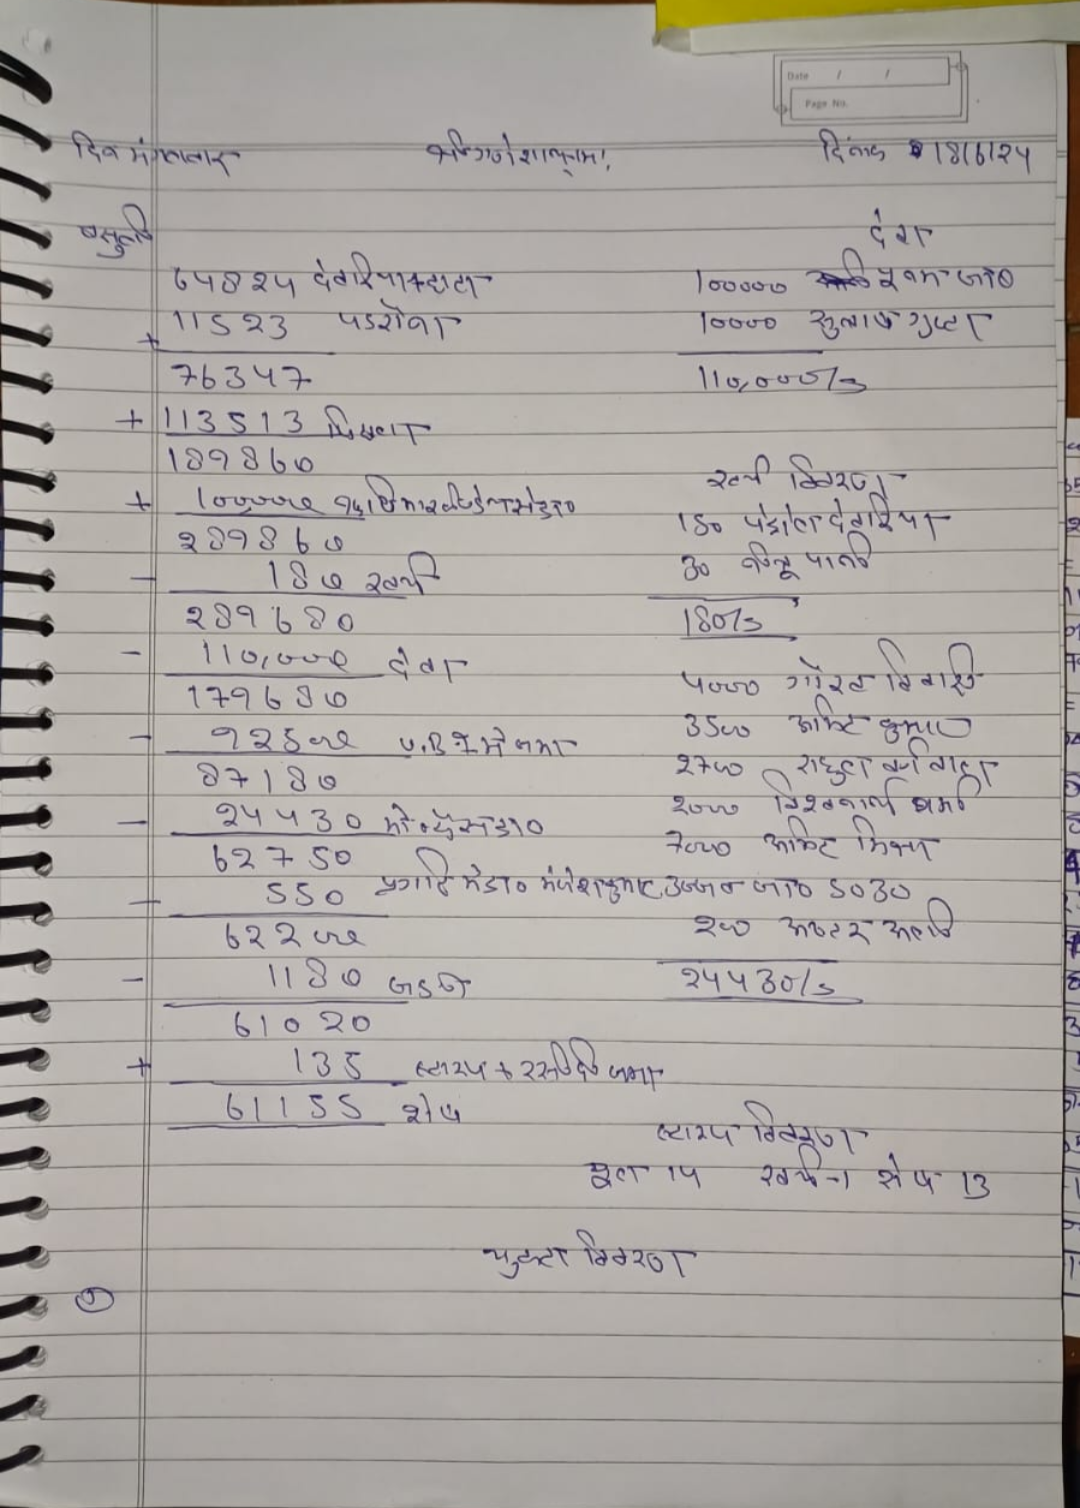 Date / /
Page No.
दिन मंगलवार श्री गणेशाय नमः दिनांक 18/6/24
वसूली देना
64824 देवरिया + हाटा 100000 जा०
11523 पडरौना 10000 गुप्ता
+
76347 110,000/-
+ 113513 पिछला
189860
खर्च विवरण
+ 100000
289860 150 पेट्रोल देवरिया
- 180 खर्च 30 पानी
289680 180/-
- 110,000 देना
179680 4000 गौरव तिवारी
- 92500 U.B.I में जमा 3500 अमित कुमार
87180 2700 राहुल
- 24430 2000 विश्वनाथ वर्मा
62750 7000 अमित मिश्रा
- 550 प्रगति मेडि० 5030
62200 200 अख्तर अली
- 1180 24430/-
61020
+ 135 स्टाम्प + रसीदी जमा
61155 शेष
स्टाम्प विवरण
कुल 14 खर्च-1 शेष 13
विवरण